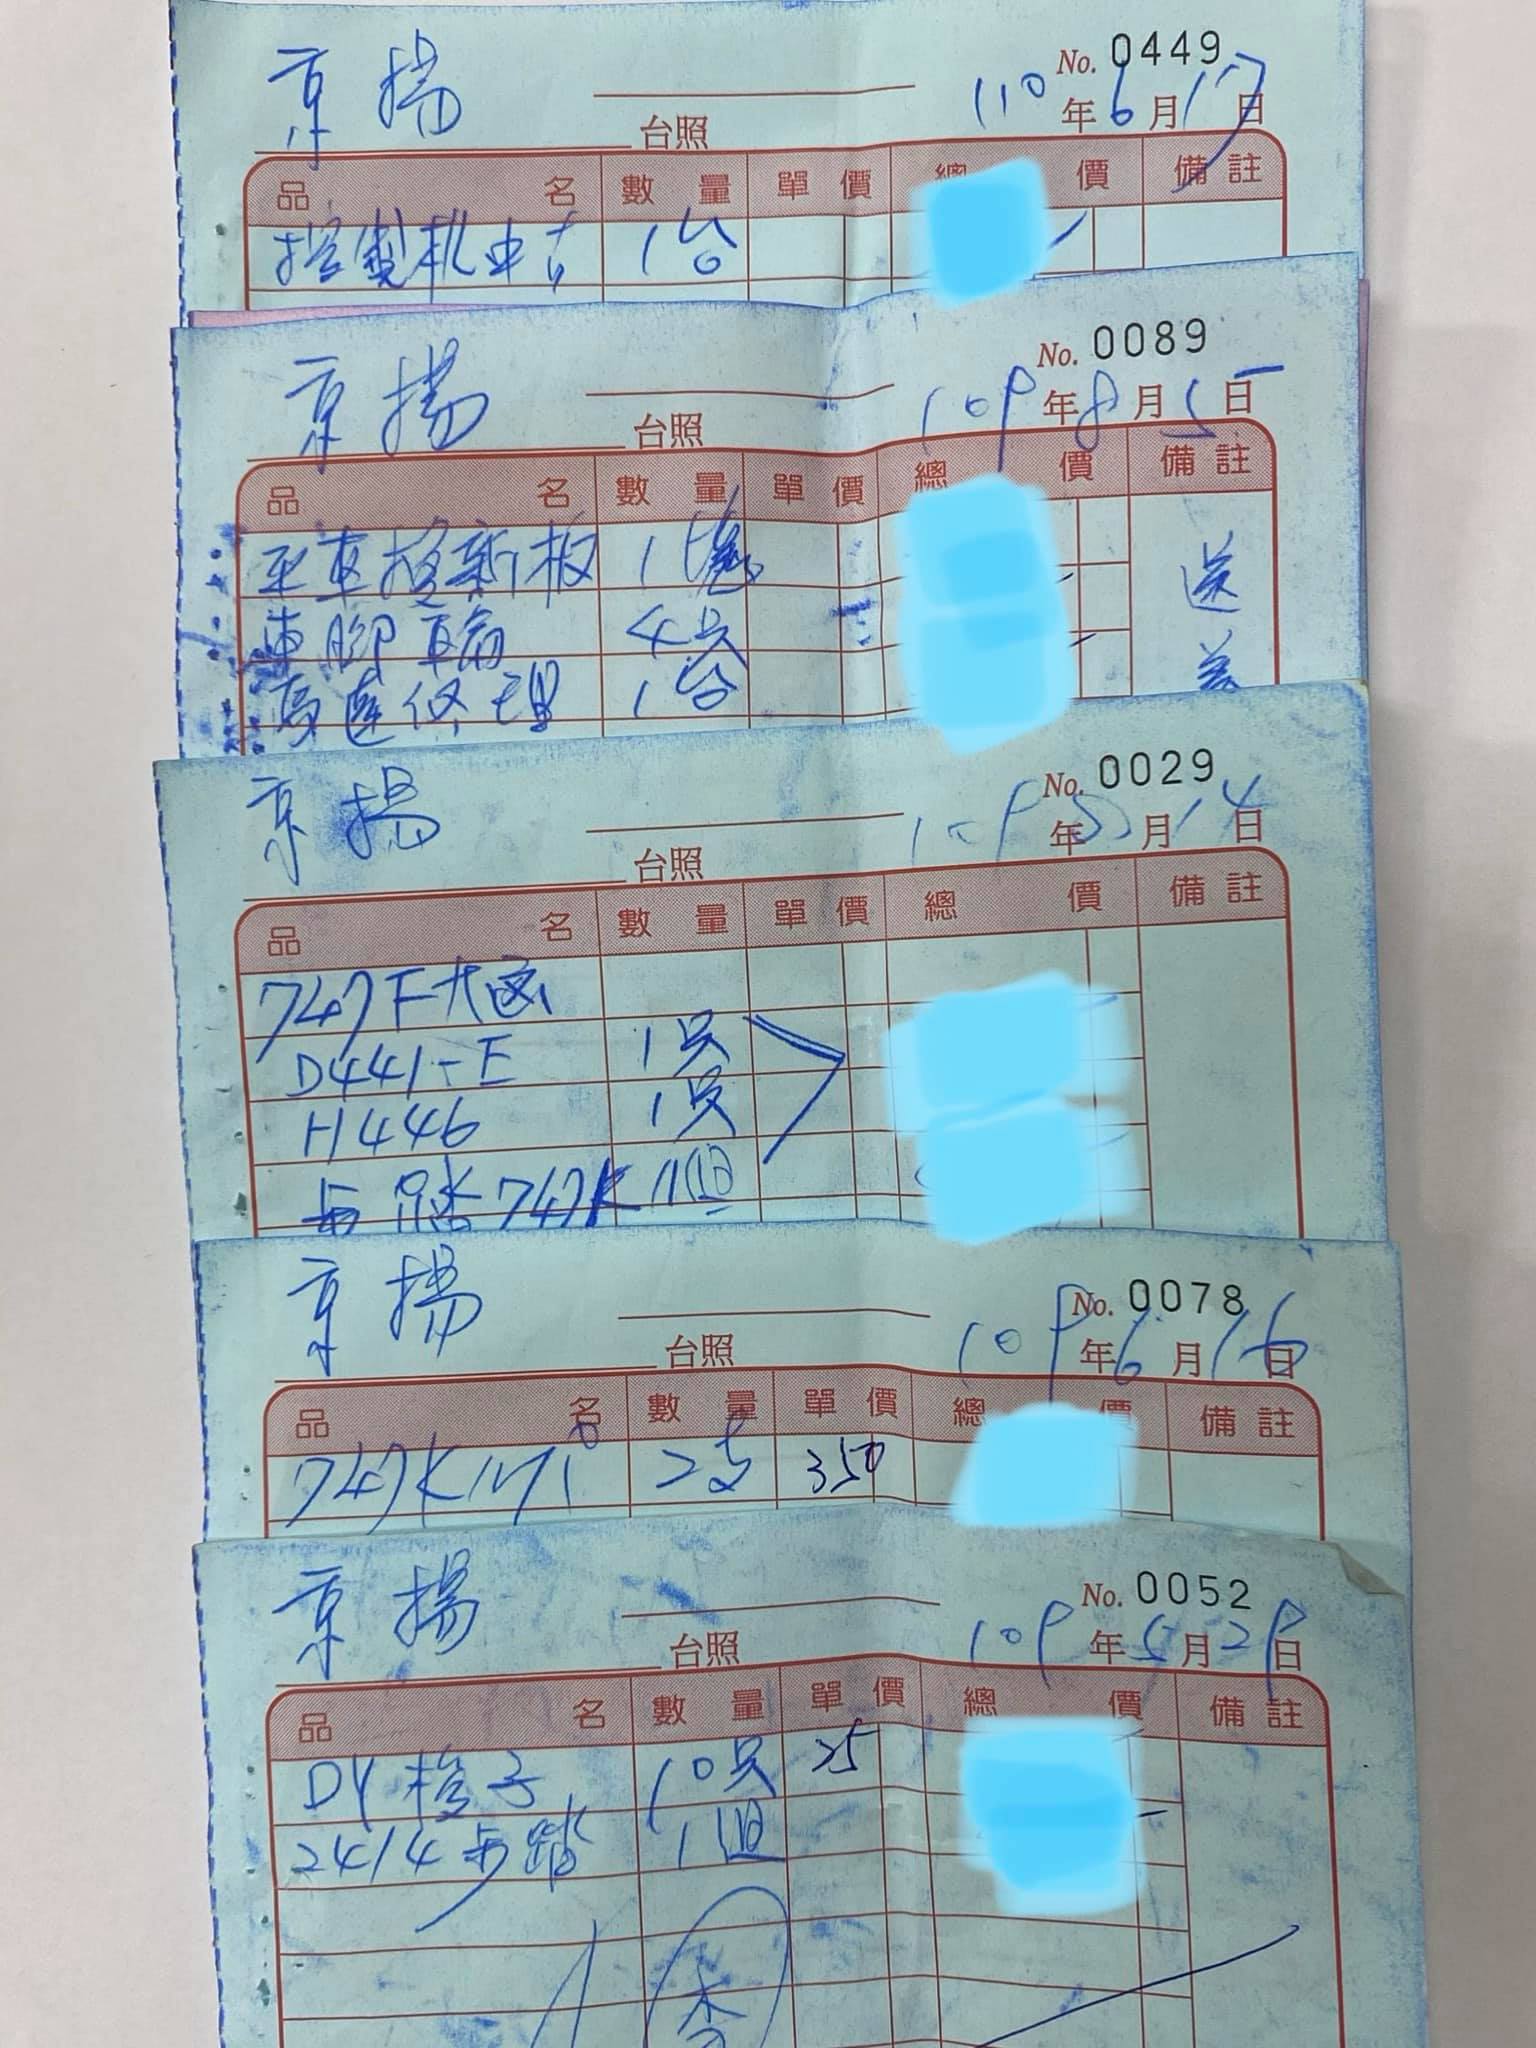 No. 0449
京揚 台照 110年6月17日
品名 數量 單價 總價 備註
控製机中古 1台
No. 0089
京揚 台照 109年8月5日
品名 數量 單價 總價 備註
平車控新板 1塊 送
車腳輪 4只
馬達修理 1台
No. 0029
京揚 台照 109年5月14日
品名 數量 單價 總價 備註
747F大
D441-E 1只
H446 1只
747K 1組
No. 0078
京揚 台照 109年6月16日
品名 數量 單價 總價 備註
747K 2支 350
No. 0052
京揚 台照 109年5月29日
品名 數量 單價 總價 備註
DY梭子 10只 25
2414 1組
李